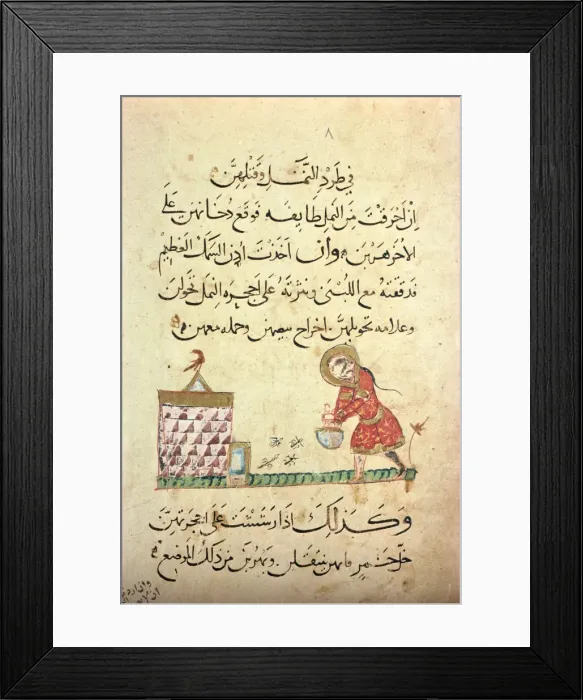 ٨
في طرد النمل وقتلهن
ان احرقت من النمل طايفه فوقع دخانهن على
الأخر هربن وان اخذت اذن السمك العظيم
فدققته مع اللبنى ونثرته على اجحره النمل تحولن
وعلامه تحويلهن اخراج بيضهن وحمله معهن
وكذلك اذا رششت على اجحرتهن
فانهن ينتقلن ويهربن من ذلك الموضع